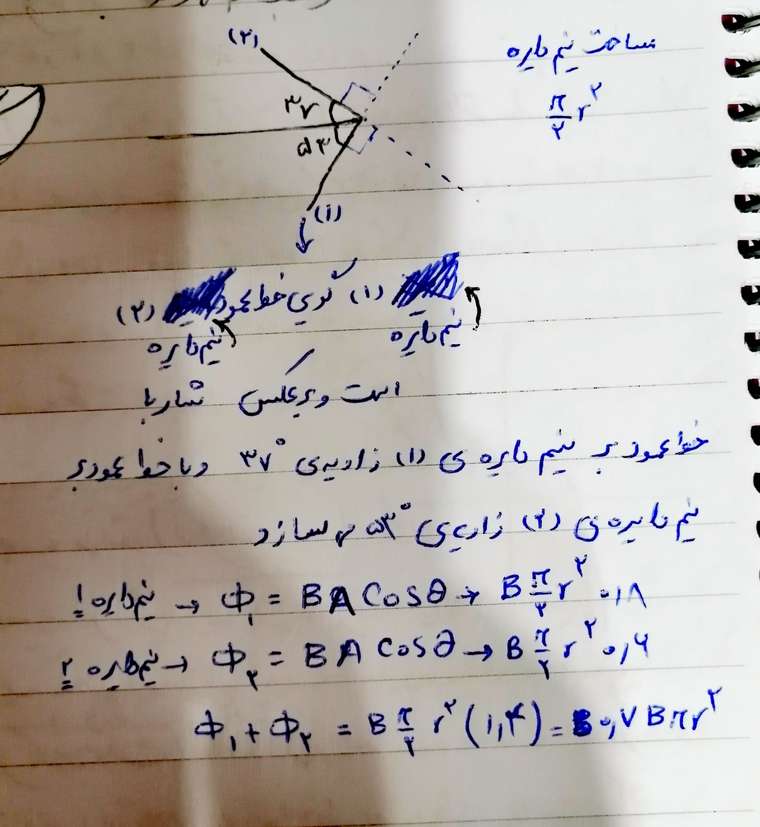 مساحت نیم دایره
π/۲ r^۲
(۲)
۳۷
۵۳
(۱)
(۱) گویی خط عمود (۲)
نیم دایره نیم دایره
است و برعکس شار با
خط عمود بر نیم دایره ی (۱) زاویه ی ۳۷° و با خط عمود بر
نیم دایره ی (۲) زاویه ی ۵۳° می سازد
نیم دایره ۱ → Φ₁ = BA Cosθ → B π/۲ r^۲ ۰,۸
نیم دایره ۲ → Φ₂ = BA Cosθ → B π/۲ r^۲ ۰,۶
Φ₁ + Φ₂ = B π/۲ r^۲ (۱,۴) = ۰,۷ B π r^۲